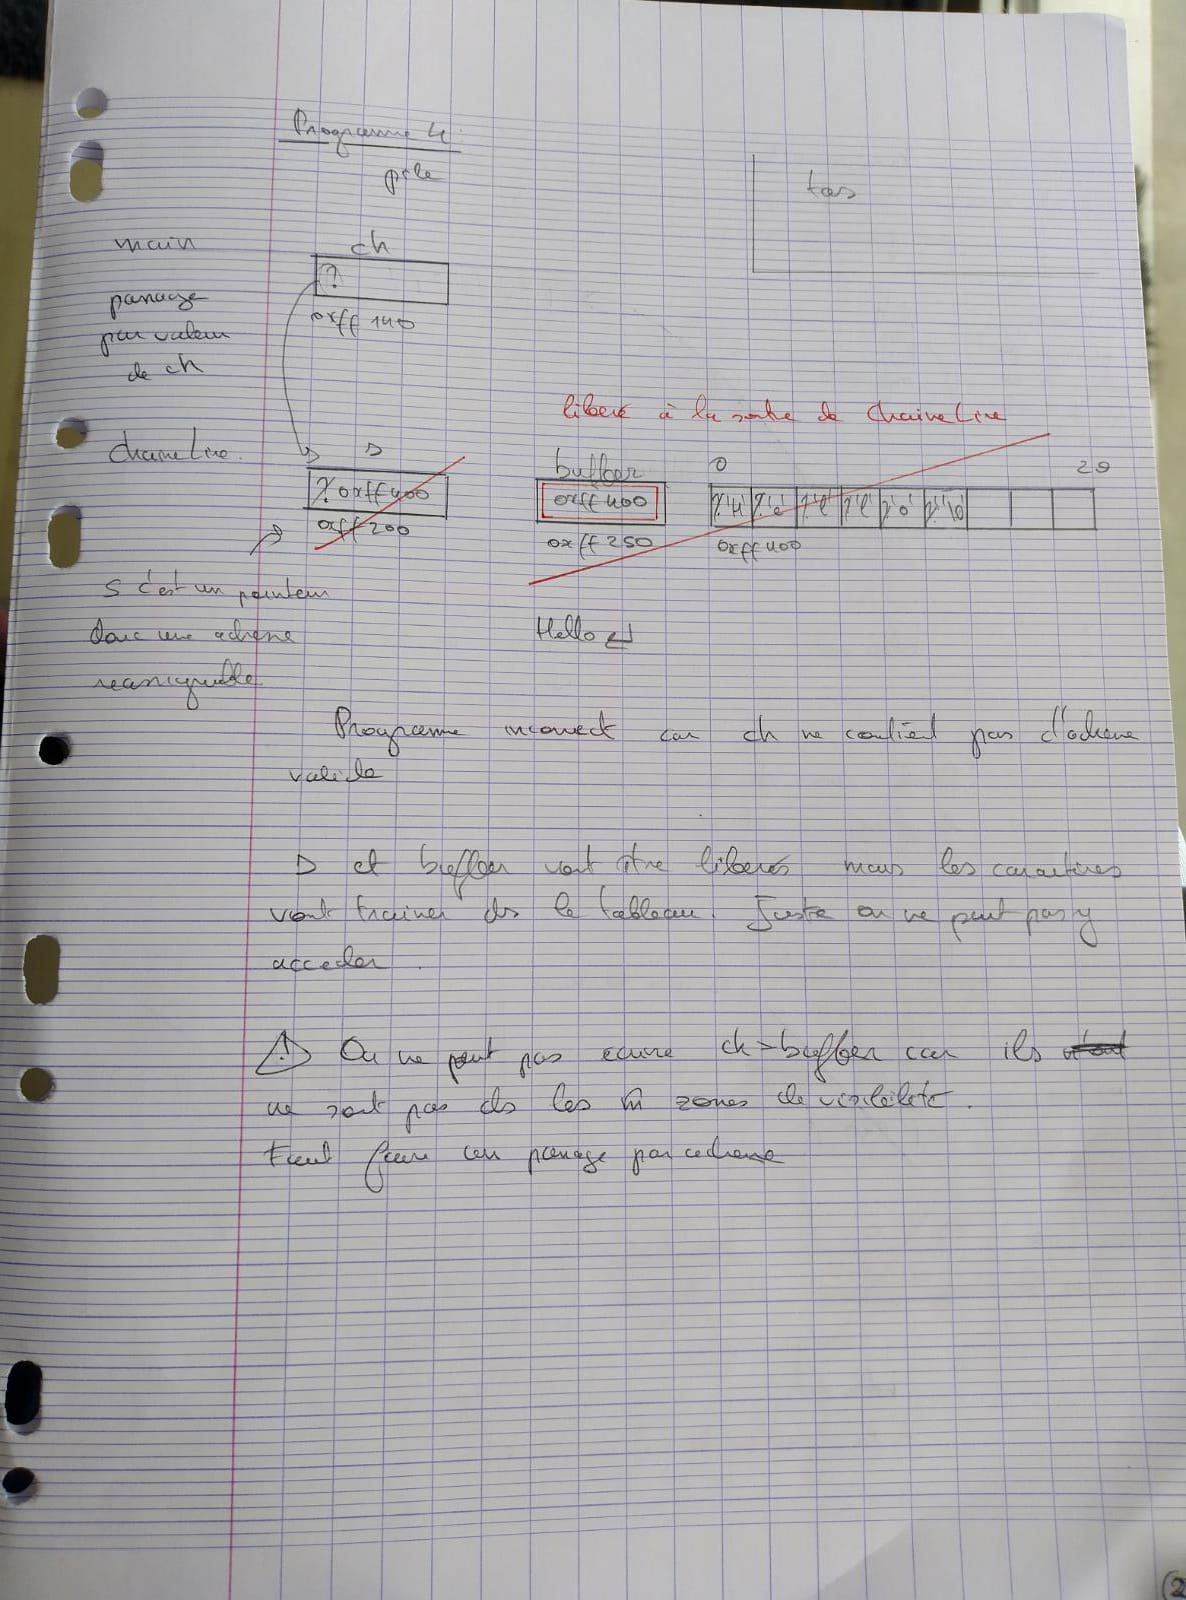 Programme 4
pile
tas
main
ch
?
0xff 140
passage
par valeur
de ch
libéré à la sortie de chaineLire
chaineLire
s
buffer
0
29
? 0xff400
0xff400
? 'H' ? 'e' ? 'l' ? 'l' ? 'o' ? '\0'
0xff200
0xff250
0xff400
s c'est un pointeur
donc une adresse
reassignable
Hello ↵
Programme incorrect car ch ne contient pas d'adresse
valide
s et buffer vont être libérés mais les caractères
vont trainer ds le tableau. Juste on ne peut pas y
acceder.
⚠ On ne peut pas écrire ch = buffer car ils
ne sont pas ds les m̂ zones de visibilité.
Faut faire un passage par adresse
2